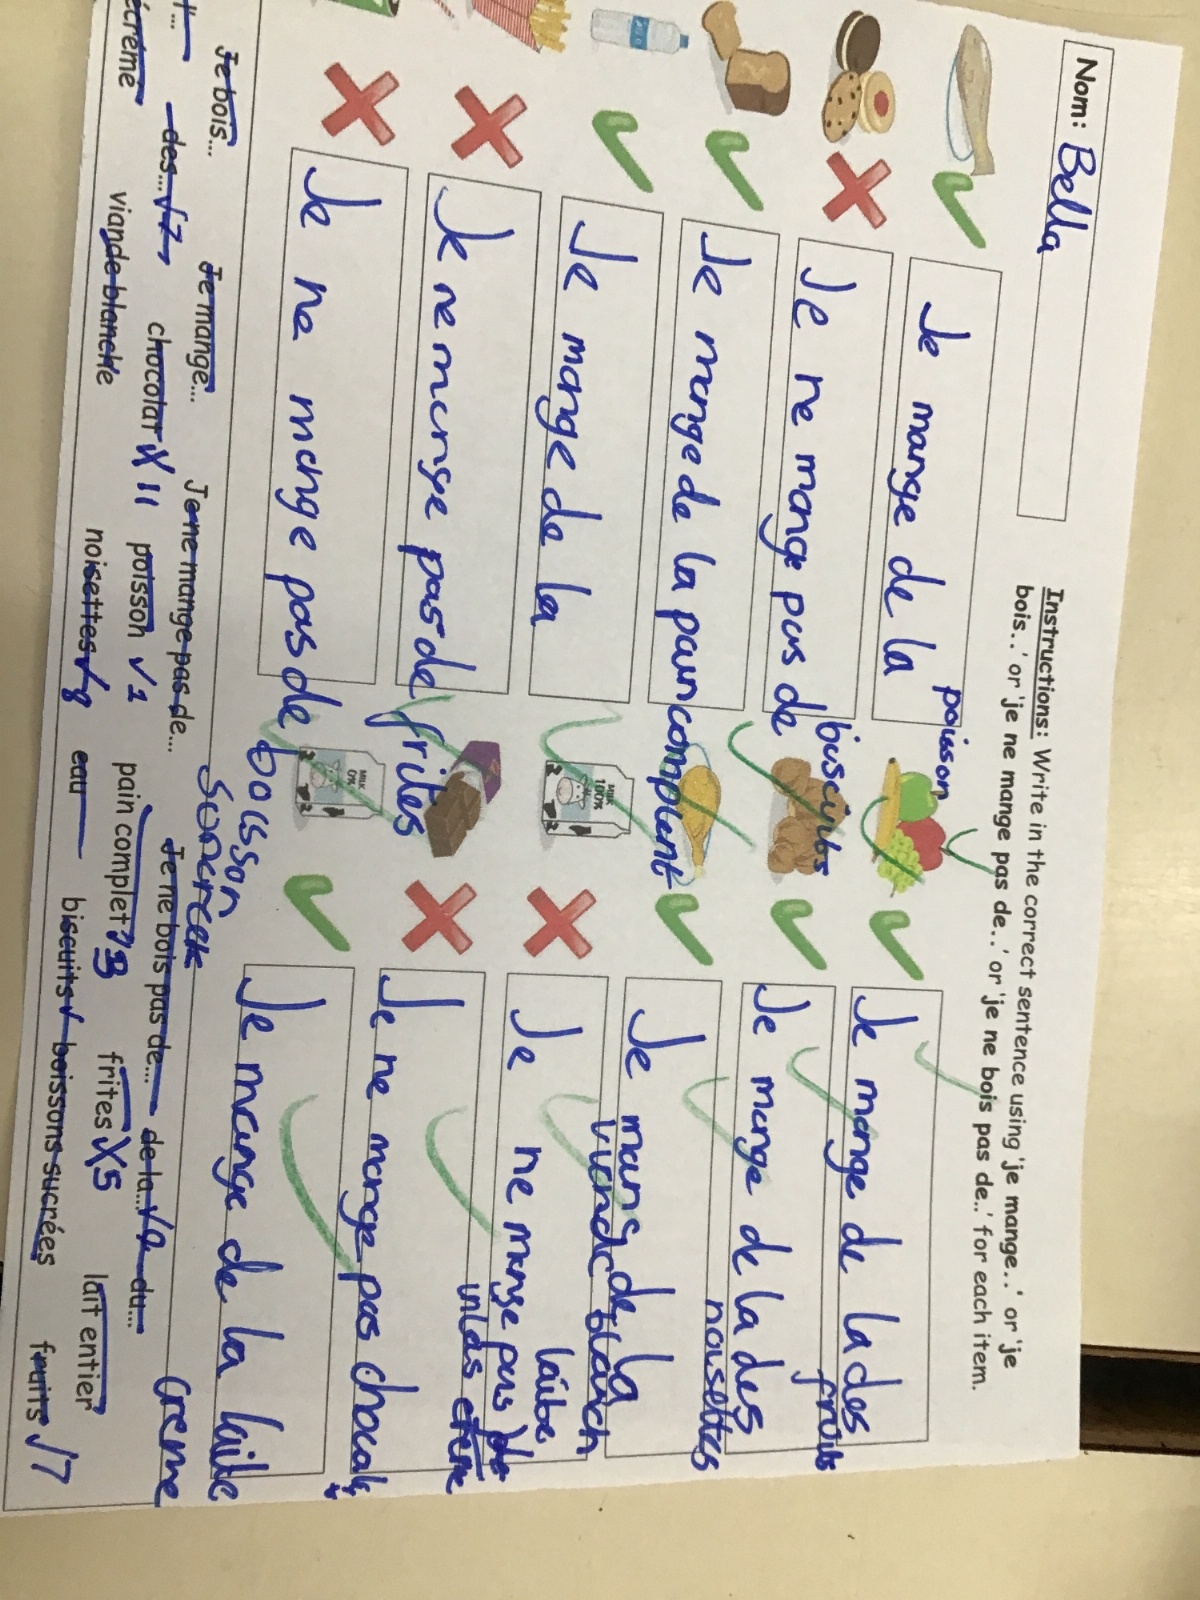 Nom: Bella
Instructions: Write in the correct sentence using 'je mange..' or 'je
bois..' or 'je ne mange pas de..' or 'je ne bois pas de..' for each item.
Je mange de la poisson
Je mange de la des fruits
Je ne mange pas de
Je mange de la des noisettes
Je mange de la pain
Je mang de la
Je mange de la
MILK 100%
Je ne mange pas
Je ne mange pas de frites
Je ne mange pas
MILK 0%
Je ne mange pas de boisson
Je mange de la laite
creme
Je bois... Je mange... Je ne mange pas de... Je ne bois pas de... de la... du...
des... chocolat poisson √1 pain complet frites X5 lait entier
écrémé viande blanche noisettes √8 eau biscuits boissons sucrées fruits √7